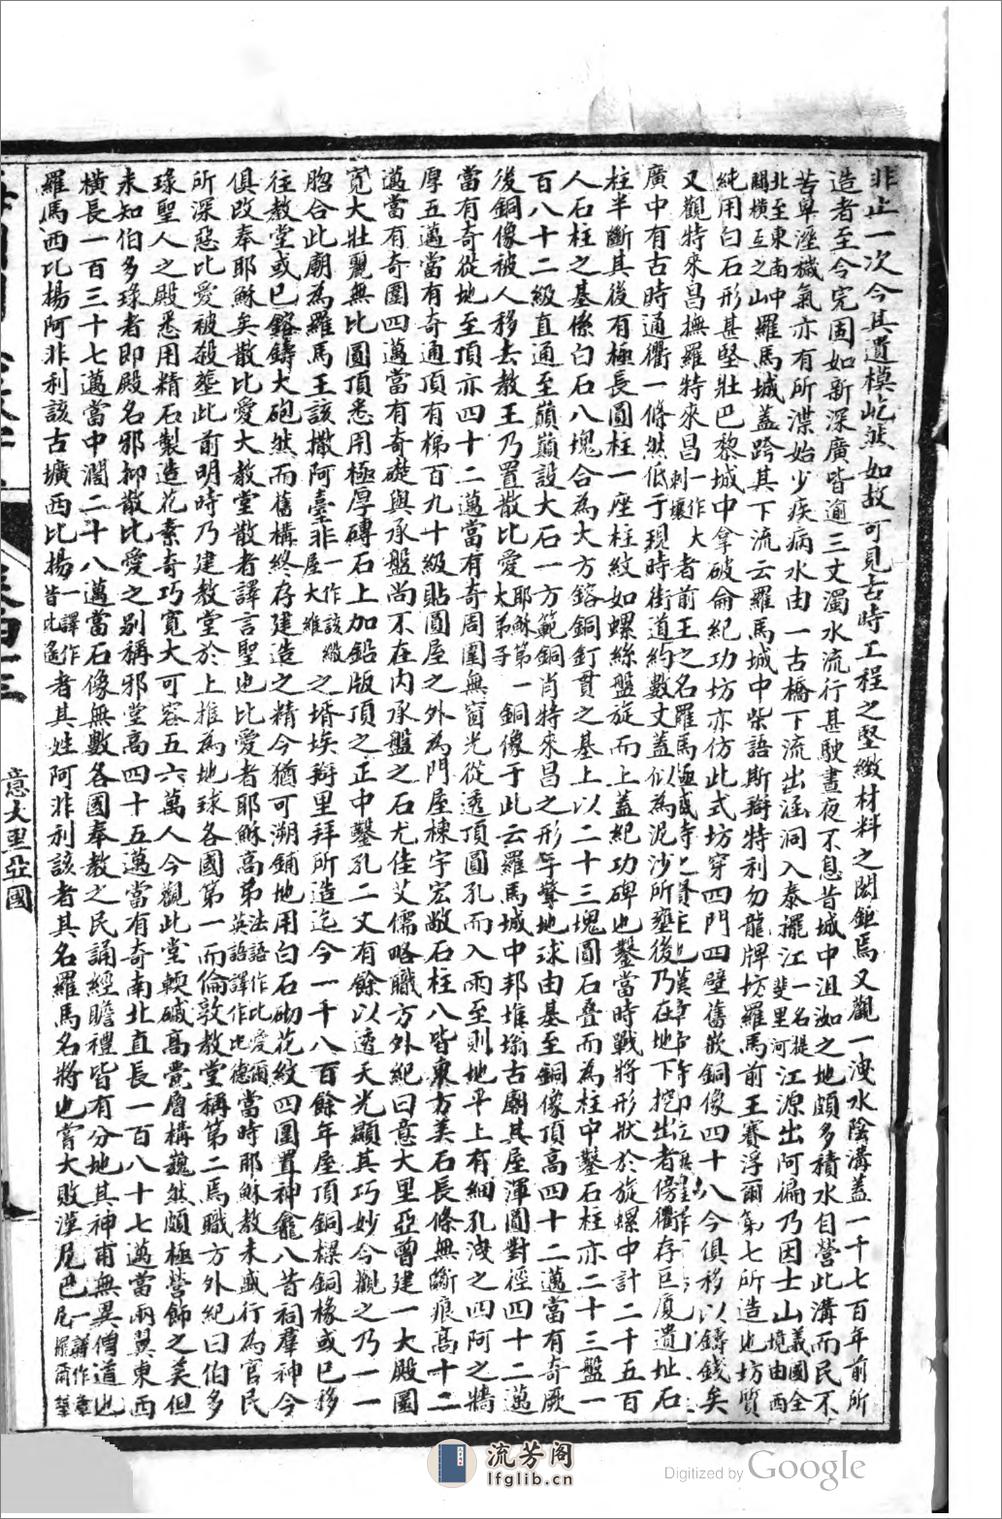 非止一次今其遺模屹然如故可見古時工程之堅緻材料之閎鉅焉又觀一洩水陰溝蓋一千七百年前所
造者至今完固如新深廣皆逾三丈濁水流行甚駛晝夜不息昔城中沮洳之地頗多積水自營此溝而民不
苦卑溼穢氣亦有所渫始少疾病水由一古橋下流出涵洞入泰擺江一名提斐里河江源出阿徧乃因士山義國全境由西
北至東南中閒橫亙之山羅馬城蓋跨其下流云羅馬城中柴語斯搿特利勿龍牌坊羅馬前王賽浮爾第七所造也坊質
純用白石形甚堅壯巴黎城中拿破侖紀功坊亦仿此式坊穿四門四壁舊嵌銅像四十八今俱移以鑄錢矣
又觀特來昌撫羅特來昌一作大刺壤者前王之名羅馬
廣中有古時通衢一條然低于現時街道約數丈蓋似為泥沙所壅後乃在地下挖出者傍衢存巨廈遺址石
柱半斷其後有極長圓柱一座柱紋如螺絲盤旋而上蓋紀功碑也鑿當時戰將形狀於旋螺中計二千五百
人石柱之基係白石八塊合為大方鎔銅釘貫之基上以二十三塊圓石疊而為柱中鑿石柱亦二十三盤一
百八十二級直通至蘋巔設大石一方範銅肖特來昌之形手擎地球由基至銅像頂高四十二邁當有奇厥
後銅像被人移去教王乃置散比愛耶穌第一大弟子銅像于此云羅馬城中邦堆瑜古廟其屋渾圓對徑四十二邁
當有奇從地至頂亦四十二邁當有奇周圍無窗光從透頂圓孔而入雨至則地平上有細孔洩之四阿之牆
厚五邁當有奇通頂有梯百九十級貼圓屋之外為門屋棟宇宏敞石柱八皆東方美石長條無斷痕高十二
邁當有奇圍四邁當有奇礎與承盤尚不在內承盤之石尤佳艾儒略職方外紀曰意大里亞曾建一大殿圜
寬大壯麗無比圓頂悉用極厚磚石上加鉛版頂之正中鑿孔二丈有餘以透天光顯其巧妙今觀之乃一一
脗合此廟為羅馬王該撒阿臺非一作該撒屋大維之壻埃搿里拜所造迄今一千八百餘年屋頂銅樑銅椽或已移
往教堂或已鎔鑄大砲然而舊構終存建造之精今猶可溯鋪地用白石砌花紋四圍置神龕八昔祠羣神今
俱改奉耶穌矣散比愛大教堂散者譯言聖也比愛者耶穌高弟法語作比愛爾英語譯作比德當時耶穌教未盛行為官民
所深惡比愛被殺葬此前明時乃建教堂於上推為地球各國第一而倫敦教堂稱第二焉職方外紀曰伯多
琭聖人之殿悉用精石製造花素奇巧寬大可容五六萬人今觀此堂輭磩高甍層構巍然頗極營飾之美但
未知伯多琭者即殿名邪抑散比愛之別稱邪堂高四十五邁當有奇南北直長一百八十七邁當兩翼東西
橫長一百三十七邁當中濶二十八邁當石像無數各國奉教之民誦經瞻禮皆有分地其神甫無異僧道也
羅馬西比揚阿非利該古壙西比揚一譯作昔此遙者其姓阿非利該者其名羅馬名將也嘗大敗漢尼巴
意大里亞國
流芳阁
lfglib.cn
Digitized by Google